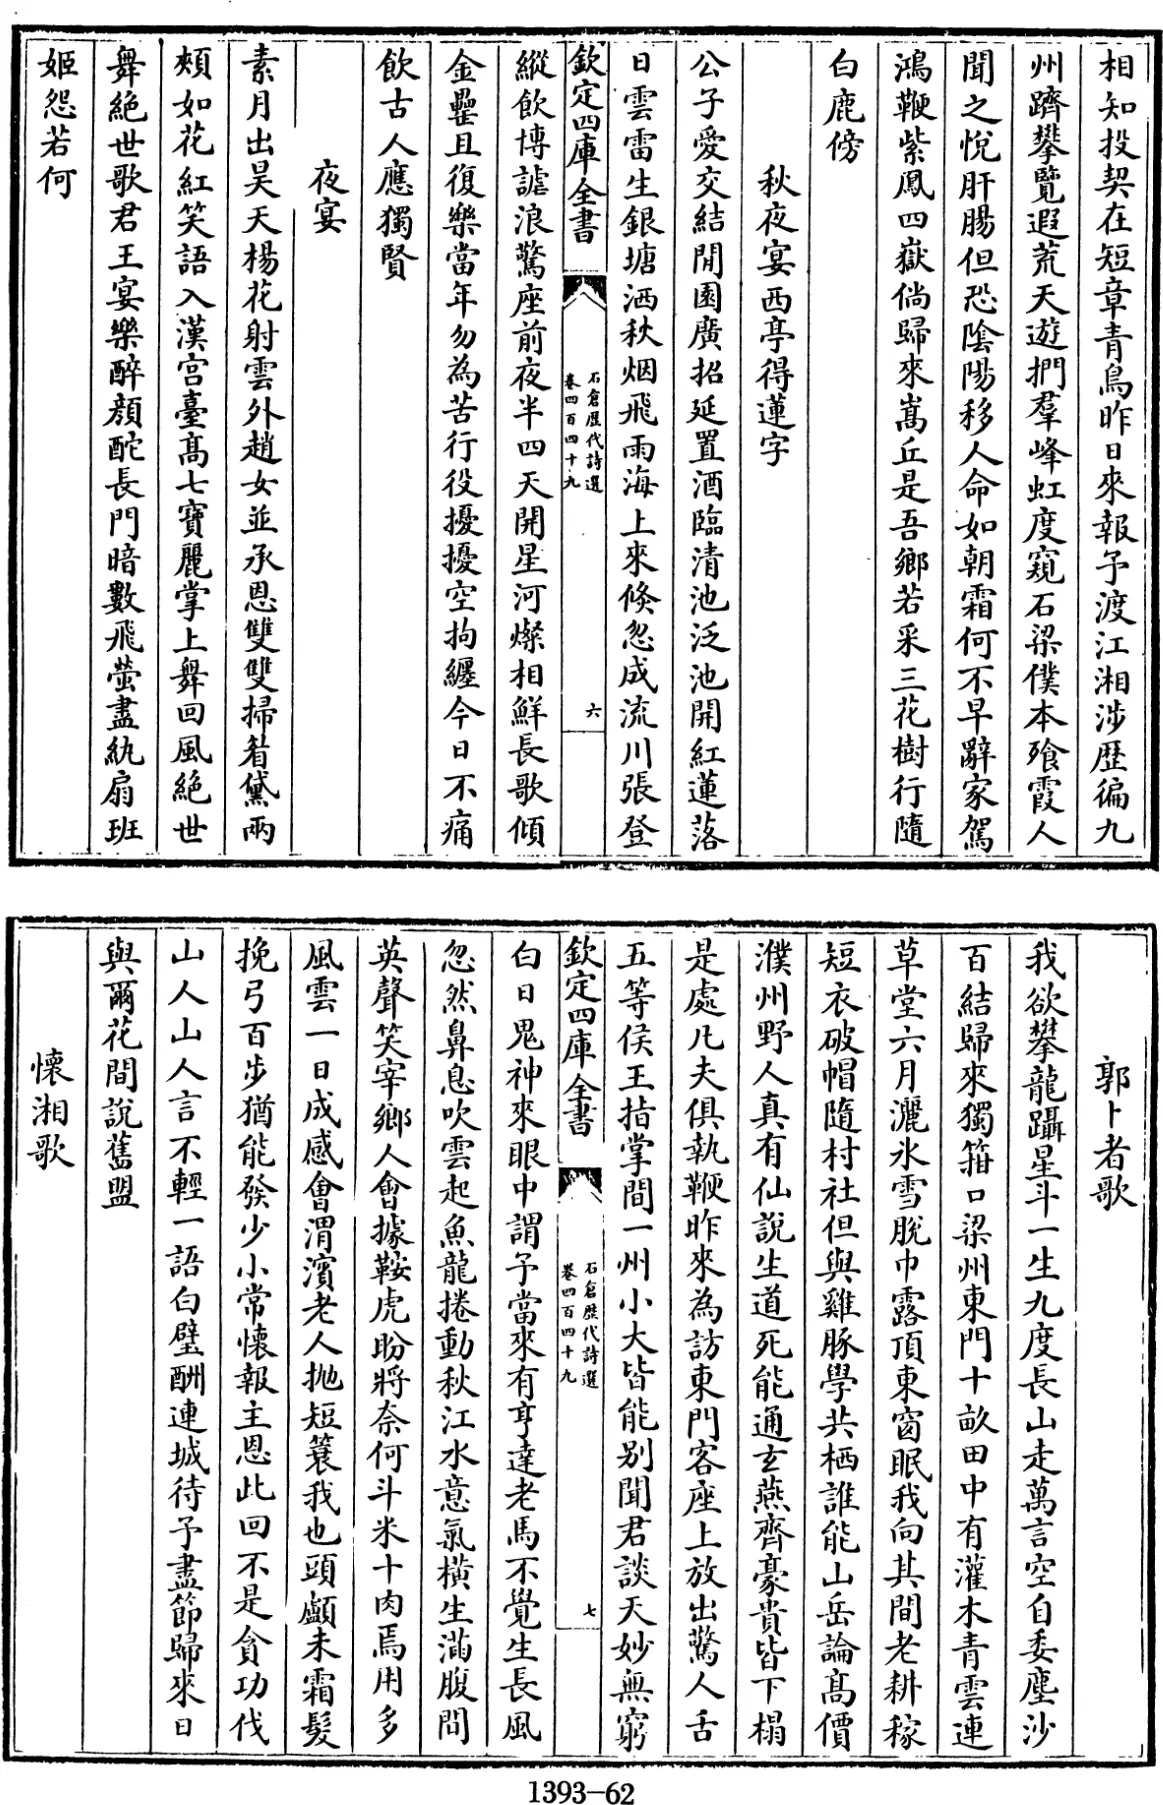 相知投契在短章青鳥昨日來報予渡江湘涉歴徧九
州躋攀覽遐荒天遊捫羣峰虹度窺石梁僕本飱霞人
聞之悅肝腸但恐陰陽移人命如朝霜何不早辭家駕
鴻鞭紫鳳四嶽倘歸來嵩丘是吾鄉若采三花樹行隨
白鹿傍
秋夜宴西亭得蓮字
公子愛交結開園廣招延置酒臨清池泛池開紅蓮落
日雲雷生銀塘洒秋烟飛雨海上來倐忽成流川張登
欽定四庫全書
石倉歴代詩選
卷四百四十九
六
縱飲博謔浪驚座前夜半四天開星河燦相鮮長歌傾
金罍且復樂當年勿為苦行役擾擾空拘纒今日不痛
飲古人應獨賢
夜宴
素月出昊天楊花射雲外趙女並承恩雙雙掃眉黛兩
頰如花紅笑語入漢宫臺髙七寶麗掌上舞回風絕世
舞絕世歌君王宴樂醉顔酡長門暗數飛螢盡紈扇班
姬怨若何
郭卜者歌
我欲攀龍躡星斗一生九度長山走萬言空自委塵沙
百結歸來獨箝口梁州東門十畝田中有灌木青雲連
草堂六月灑氷雪脫巾露頂東窗眠我向其間老耕稼
短衣破帽隨村社但與雞豚學共栖誰能山岳論髙價
濮州野人真有仙說生道死能通玄燕齊豪貴皆下榻
是處凡夫俱執鞭昨來為訪東門客座上放出驚人舌
五等侯王指掌間一州小大皆能别聞君談天妙無窮
欽定四庫全書
石倉歴代詩選
卷四百四十九
七
白日鬼神來眼中謂予當來有亨達老馬不覺生長風
忽然鼻息吹雲起魚龍捲動秋江水意氣橫生滿腹間
英聲笑宰鄉人會據鞍虎盼將奈何斗米十肉焉用多
風雲一日成感會渭濱老人拋短蓑我也頭顱未霜髮
挽弓百步猶能發少小常懷報主恩此回不是貪功伐
山人山人言不輕一語白璧酬連城待予盡節歸來日
與爾花間說舊盟
懷湘歌
1393-62